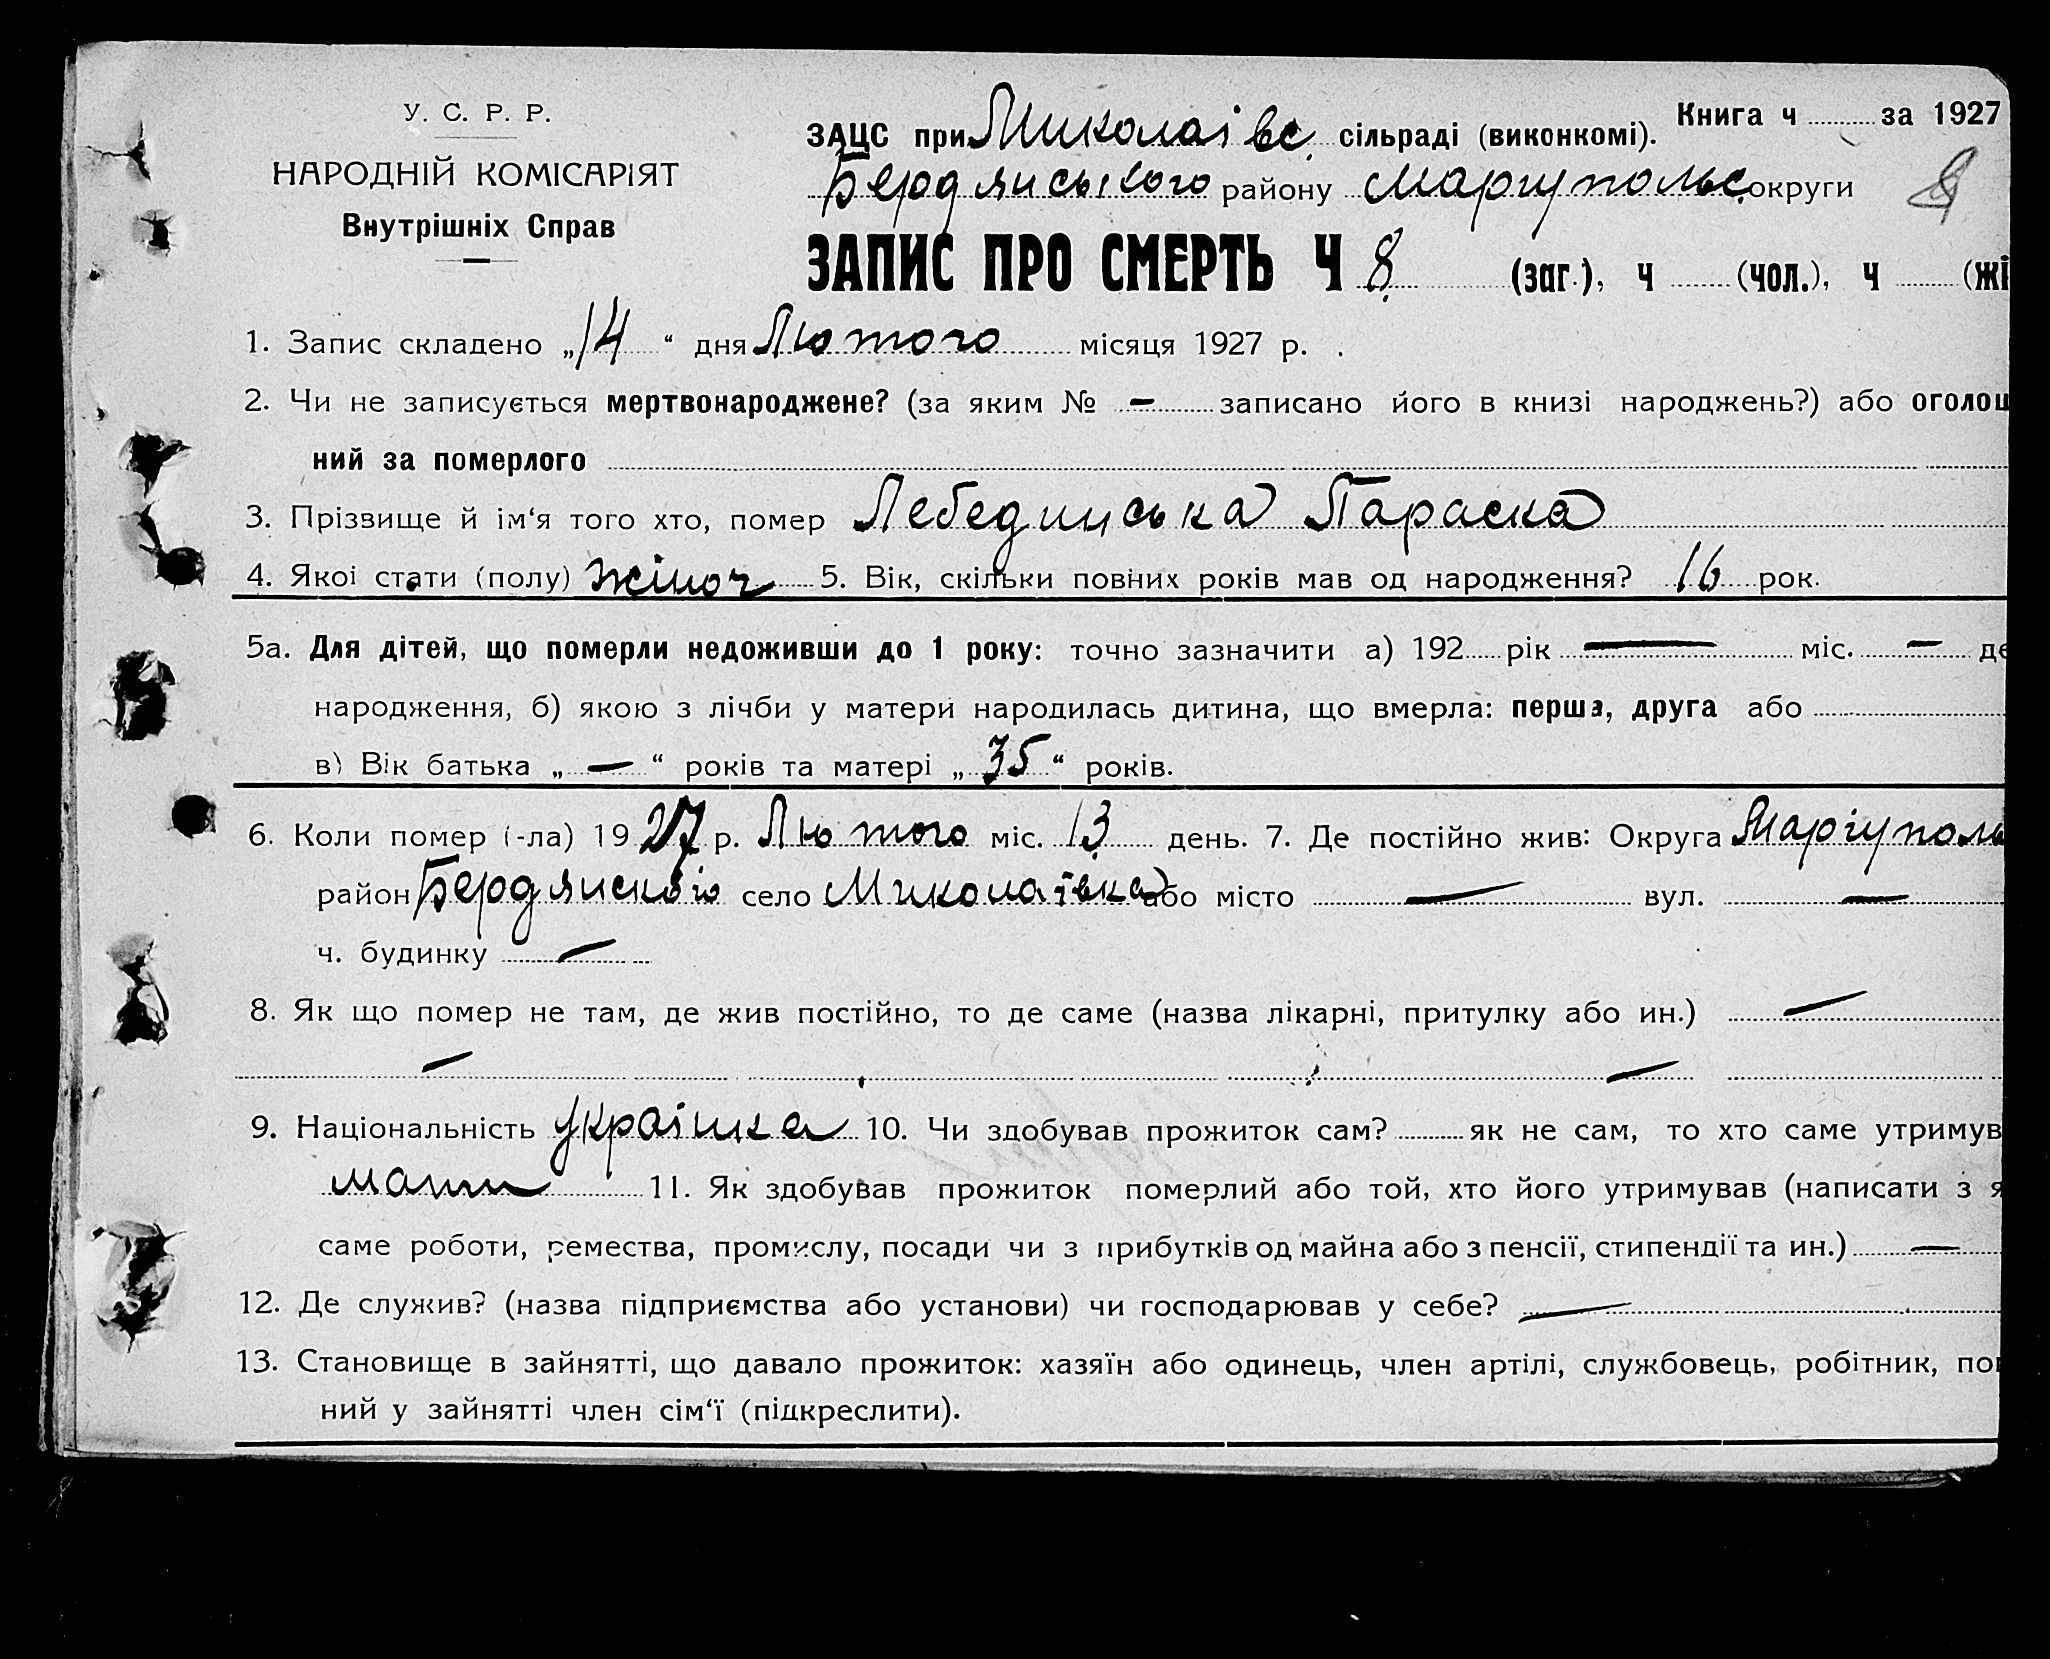 У. С. Р. Р.
НАРОДНІЙ КОМІСАРІЯТ
Внутрішніх Справ
Книга ч ........ за 1927
ЗАЦС при Миколаівс. сільраді (виконкомі).
Бердянського району Маріупольс. округи
8
ЗАПИС ПРО СМЕРТЬ Ч 8 (заг.), ч ........ (чол.), ч ........ (жі
1. Запис складено „14“ дня Лютого місяця 1927 р.
2. Чи не записується мертвонароджене? (за яким № — записано його в книзі народжень?) або оголош
ний за померлого
3. Прізвище й ім‘я того хто, помер Лебединська Параска
4. Якоі стати (полу) жіноч 5. Вік, скільки повних років мав од народження? 16 рок.
5а. Для дітей, що померли недоживши до 1 року: точно зазначити а) 192.... рік — міс. — де
народження, б) якою з лічби у матери народилась дитина, що вмерла: перша, друга або
в) Вік батька „—“ років та матері „35“ років.
6. Коли помер (-ла) 1927 р. Лютого міс. 13 день. 7. Де постійно жив: Округа Маріуполь
район Бердянського село Миколаївка або місто — вул. —
ч. будинку —
8. Як що помер не там, де жив постійно, то де саме (назва лікарні, притулку або ин.) —
— —
9. Національність українка 10. Чи здобував прожиток сам? ........ як не сам, то хто саме утримув
мати 11. Як здобував прожиток померлий або той, хто його утримував (написати з я
саме роботи, ремества, промислу, посади чи з прибутків од майна або з пенсії, стипендії та ин.) —
12. Де служив? (назва підприємства або установи) чи господарював у себе? —
13. Становище в зайнятті, що давало прожиток: хазяїн або одинець, член артілі, службовець, робітник, пом
ний у зайнятті член сім‘ї (підкреслити).